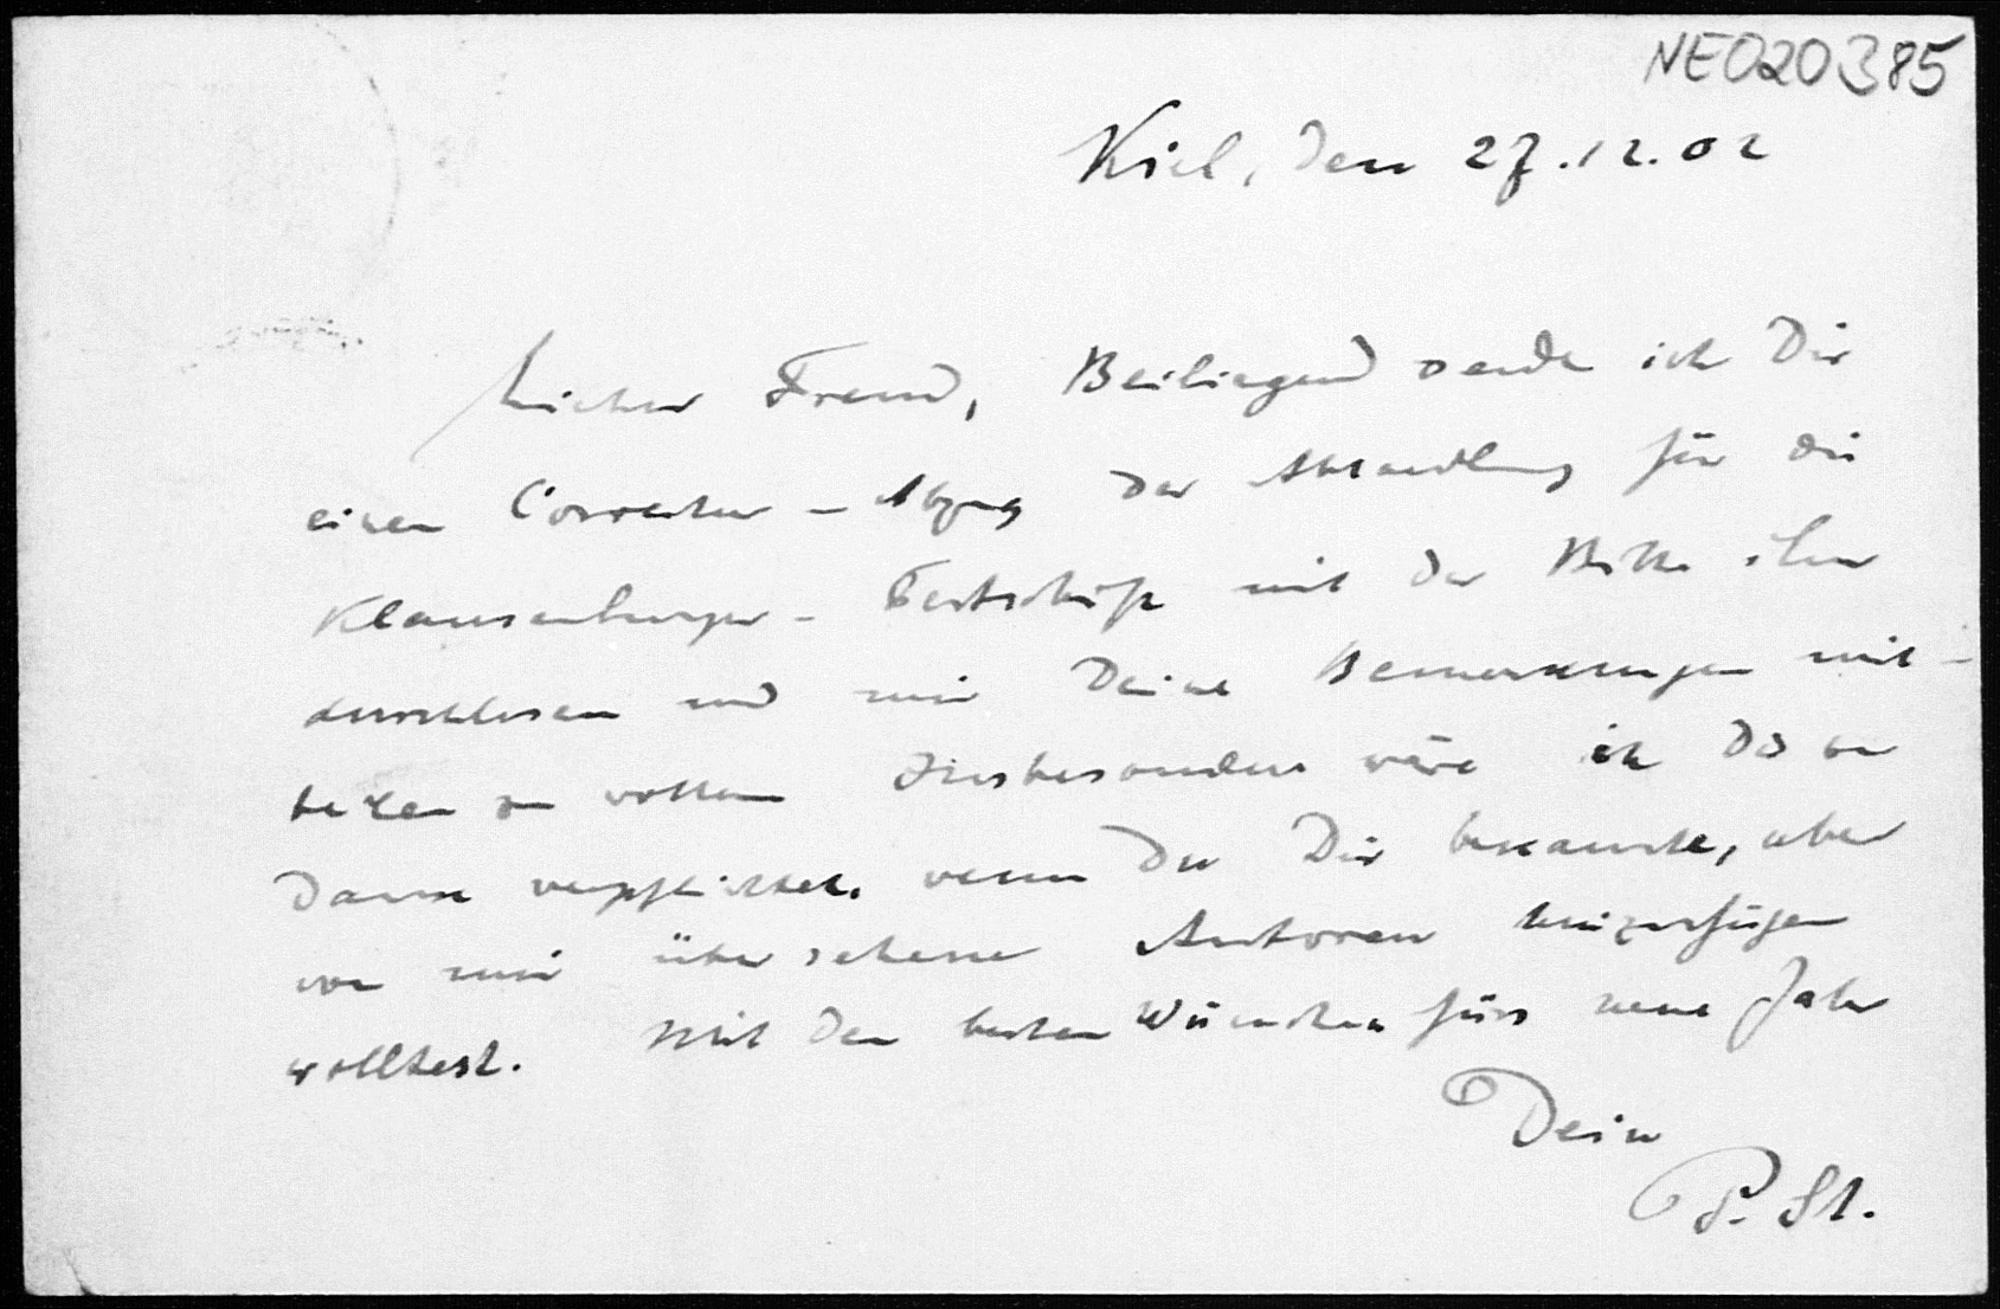 NE020385
Kiel, den 27.12.02
Lieber Freund, Beiliegend sende ich Dir
einen Correctur-Abzug der Abhandlung für die
Klausenburger-Festschrift mit der Bitte ihn
durchlesen und mir Deine Bemerkungen mit-
teilen zu wollen Insbesondere wäre ich Dir
Dank verpflichtet. wenn Du Dir bekannte, aber
von mir übersehene Autoren hinzufügen
wolltest. Mit den besten Wünschen fürs neue Jahr
Dein
P. St.